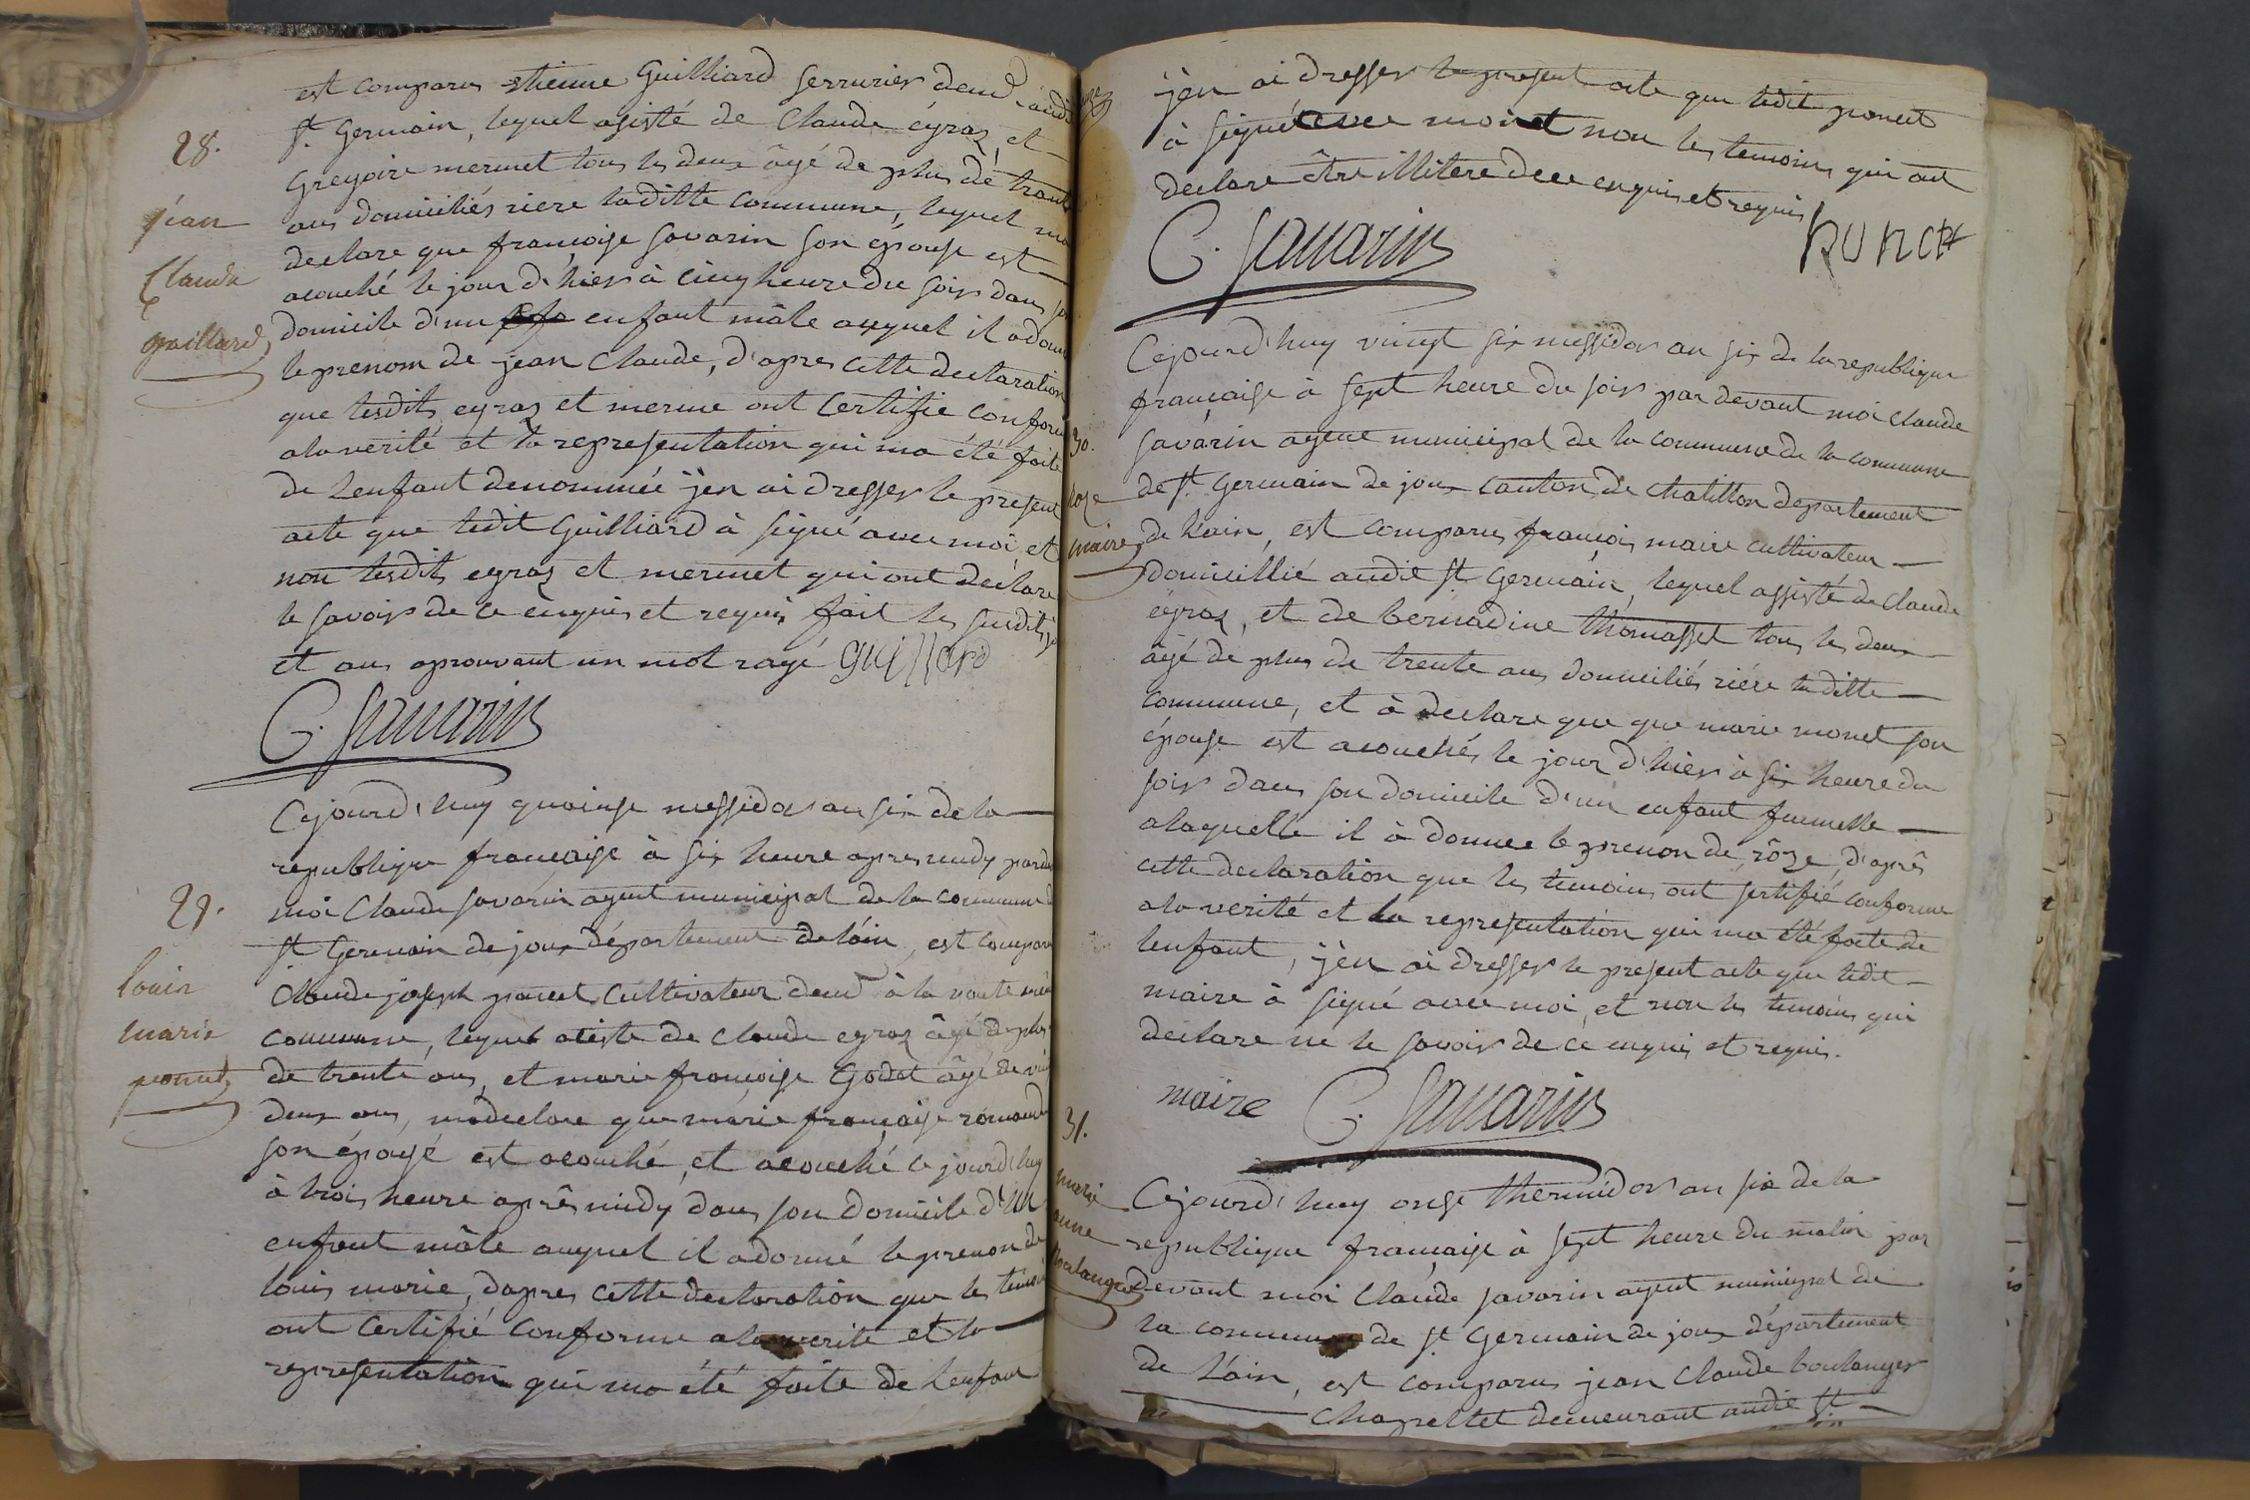 est comparus etienne Guilliard serrurier demt audit
28.
St. Germain, lequel asisté de Claude égraz, et
Gregoire mermet tous les deux âgé de plus de trante
ans domiciliés riere laditte commune, lequel ma
jéan
declare que francoise savarin son épouse est
Claude
acouché le jour d'hier à cinq heure du soir dans son
gaillard
domicile d'un enfant mâle auquel il adonné
le prenom de jean Claude, d'apres cette declaration
que lesdits egraz et merme ont certifie conforme
ala verité et la representation qui ma été faite
de lenfant denommée jen ai dresser le present
acte que ledit Guilliard à signé avec moi et
non lesdits egraz et mermet qui ont declare
le savoir de ce enquis et requis fait les susdits jr
et ans aprouvant un mot rayé guillard
C. Savarin
Cejourd'huy quainse messidor an six de la
republique francaise à six heure apres midy par de
29.
moi Claude savarin agent municipal de la commune de
St Germain de joux département de láin, est comparu
louis
Claude joseph poncet cultivateur demt à la voute méme
marie
commune, lequel atiste de Claude egraz âgé de plus
poncet
de trente ans, et marie françoise Godet âgé de vin
deux ans, ma declare que marie françoise romand
son épouse est acouché, et acouché ce jourd'huy
à trois heure après midy dans son domicile d'un
enfant mâle auquel il adonné le prenon de
louis marie, dapres cette declaration que les temoin
ont certifié conforme ala verite et la
representation qui ma été faite de lenfant
jén ai dresser le present acte que ledit poncet
à signé avec moi et non les temoins qui ont
declare être illitere de ce enquis et requis
C. Savarin
PONCET
Cejourd'huy vingt six messidor an six de la republique
française à sept heure du soir par devant moi Claude
30.
savarin agent municipal de la commune de la commune
roze
de St Germain de joux canton de chatillon departement
maire
de láin, est comparus françois maire cultivateur
domicillié audit St Germain, lequel assisté de Claude
égraz, et de bernadine thomasset tous les deux
âgé de plus de trente ans domiciliés riére laditte
commune, et à declare que que marie monet son
épouse est acouchés le jour d'hier à six heure du
soir dans son domicile d'un enfant fuemelle
alaquelle il à donnee le prenon de rôze, d'aprês
cette declaration que les temoins ont sertifié conforme
ala verité et la representation qui ma été faite de
lenfant, jén ai dresser le present acte que ledit
maire à signé avec moi, et non les temoins qui
declare ne le savoir de ce enquis et requis.
maire C. Savarin
31.
marie
Cejourd'huy onse thermidor an six de la
anne
republique française à sept heure du matin par
boulanger
devant moi Claude savarin agent municipal de
la commune de St Germain de joux département
de láin, est comparus jean Claude boulanger
chapellet demeurant audit St